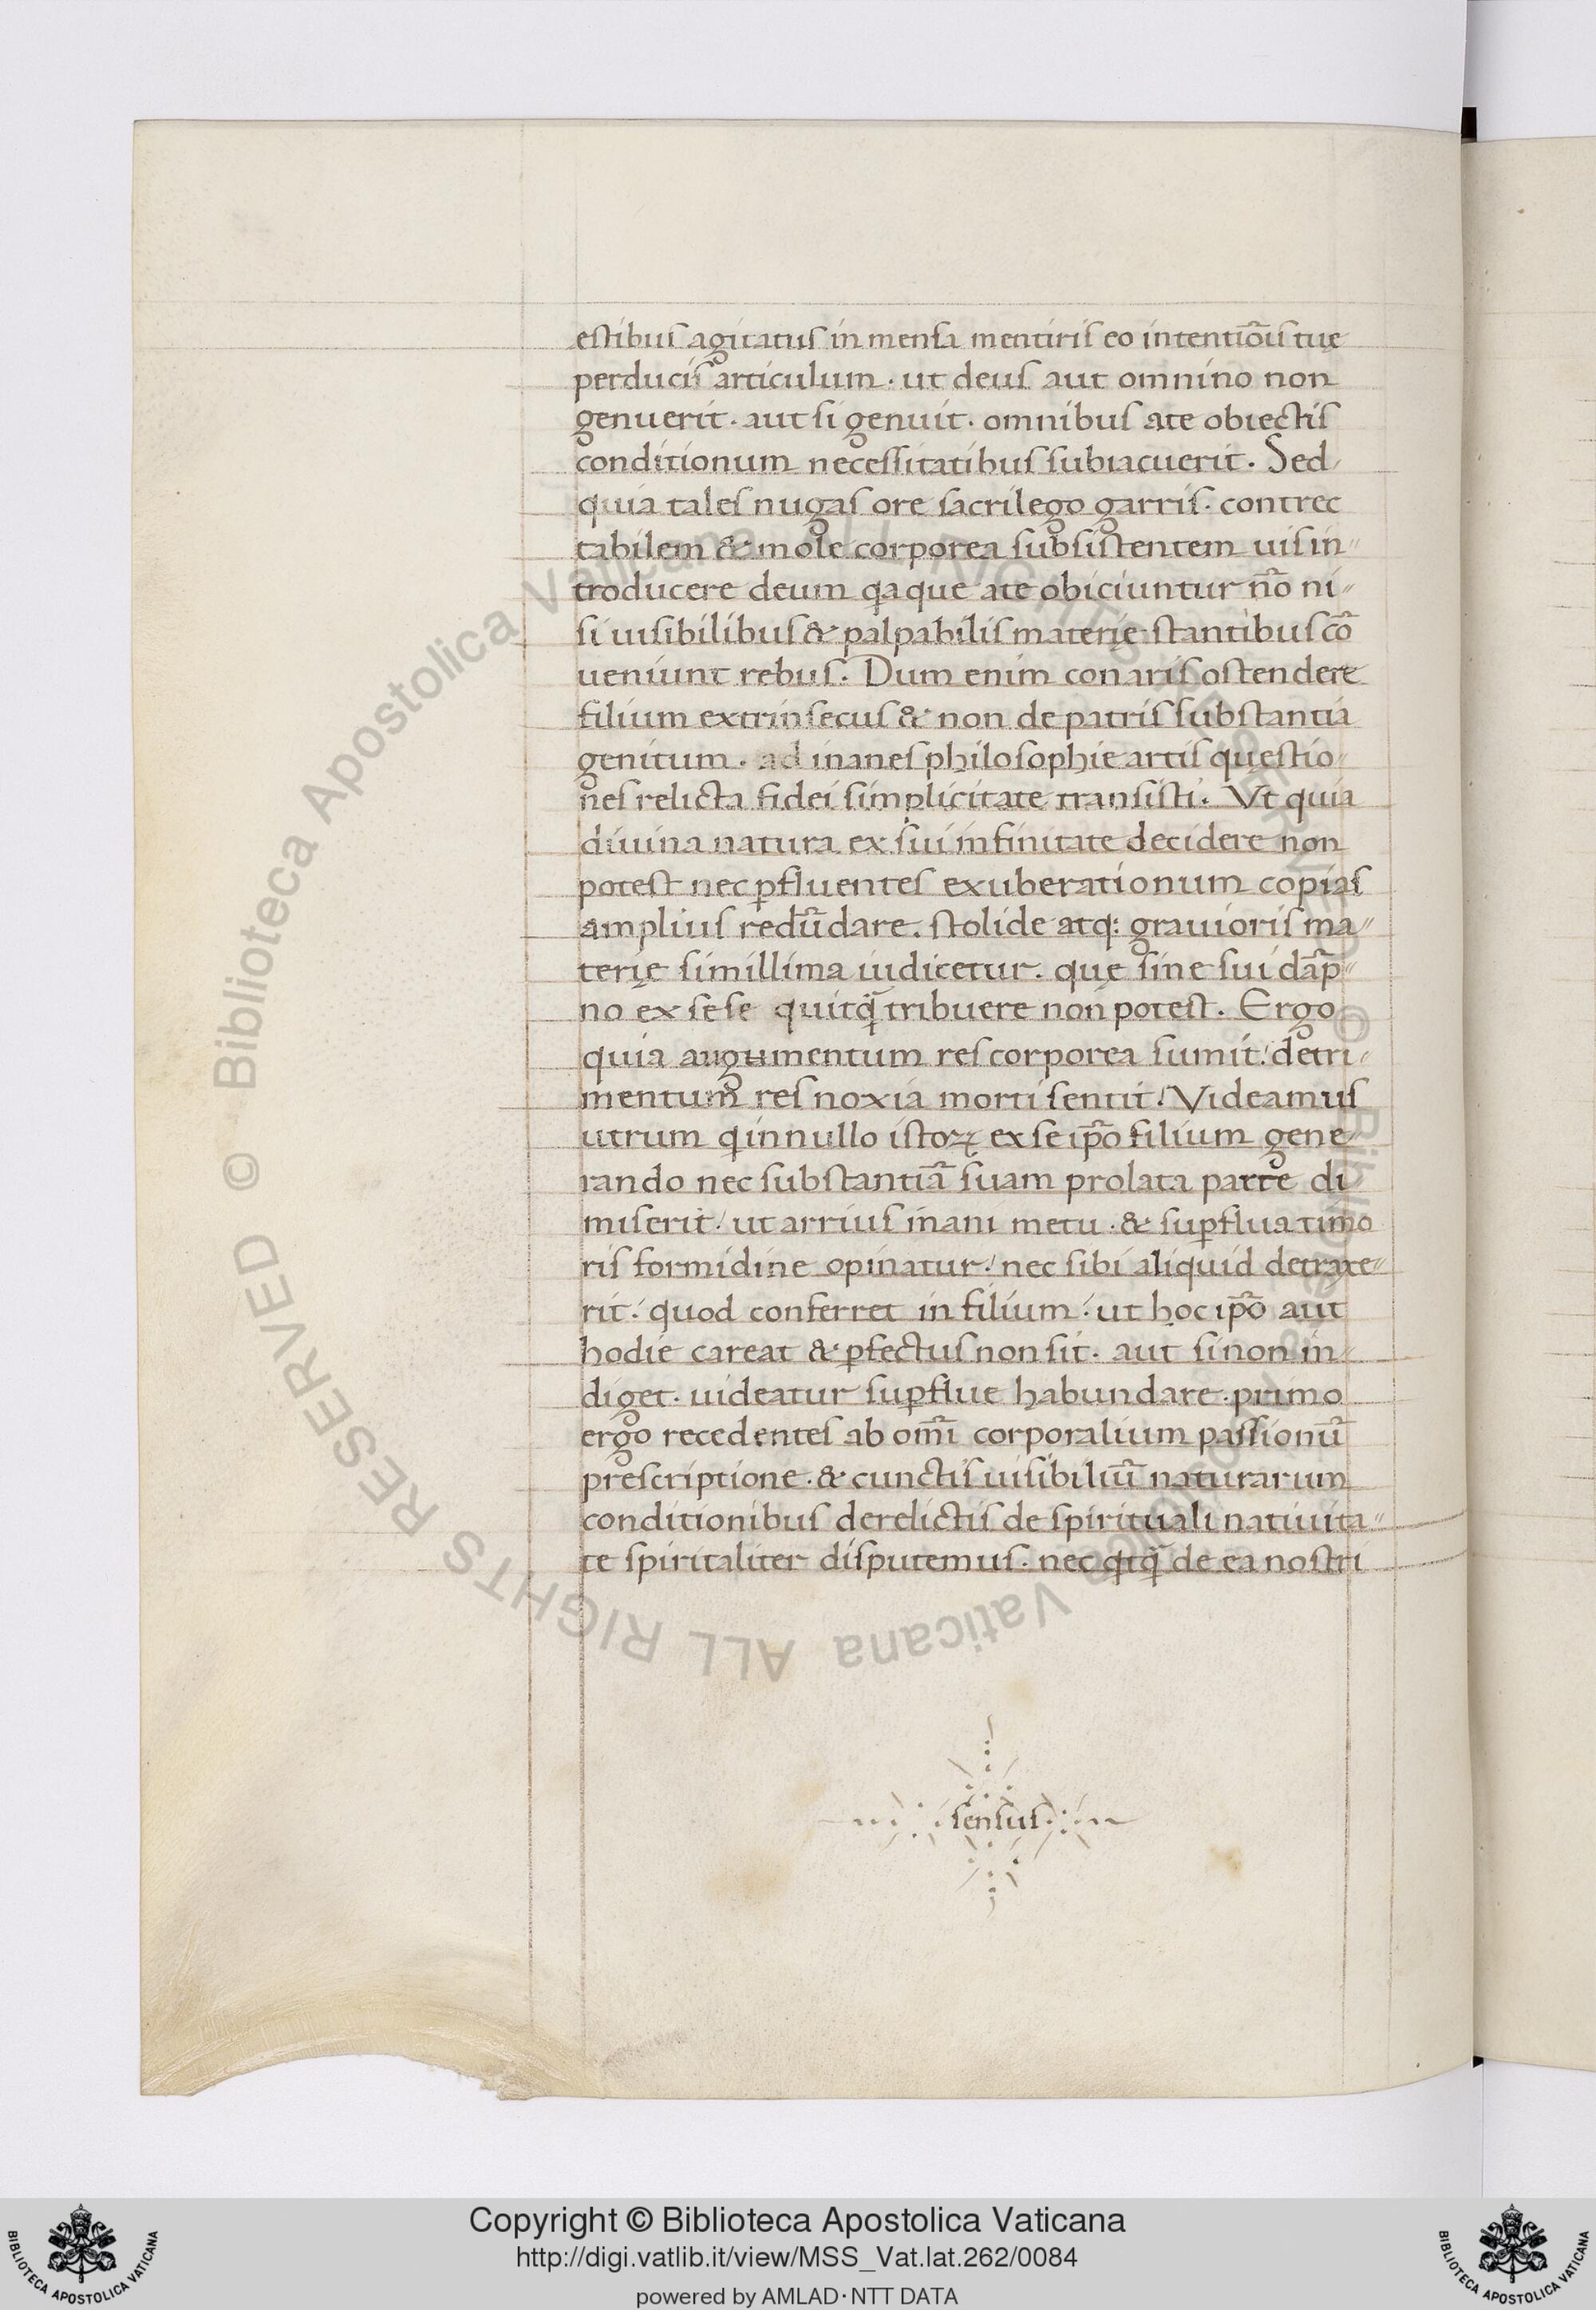 estibus agitatus in mensa mentiris eo intentiōīs tuę
perducis articulum · ut deus aut omnino non
genuerit · aut si genuit · omnibus ate obiectis
conditionum necessitatibus subiacuerit · Sed
quia tales nugas ore sacrilego garris · contrec
tabilem & mole corporea subsistentem uis in-
troducere deum q̄a que ate obiciuntur nō ni-
si uisibilibus & palpabilis materię stantibus cō
ueniunt rebus · Dum enim conaris ostendere
filium extrinsecus & non de patris substantia
genitum · ad inanes philosophie artis quęstio-
nes relicta fidei simplicitate transisti · Vt quia
diuina natura ex sui infinitate decidere non
potest nec ꝑfluentes exuberationum copias
amplius redūdare · stolide atq: grauioris ma-
terię simillima iudicetur · quę sine sui dāp-
no ex sese quitq̄ tribuere non potest · Ergo
quia augumentum res corporea sumit / detri-
mentum res noxia morti sentit / Videamus
utrum q̄ in nullo istoꝝ ex se ipō filium gene-
rando nec substantiā suam prolata parte di
miserit / ut arrius inani metu · & suꝑflua timo
ris formidine opinatur / nec sibi aliquid detraxe-
rit / quod conferret in filium / ut hoc ipō aut
hodie careat & ꝑfectus non sit · aut si non in-
diget · uideatur suꝑflue habundare · primo
ergo recedentes ab om̄i corporalium passionū
prescriptione · & cunctis uisibiliū naturarum
conditionibus derelictis de spirituali natiuita-
te spiritaliter disputemus · nec q̄tq̄ de ea nostri
sensus
© Biblioteca Apostolica Vaticana ALL RIGHTS RESERVED © Biblioteca Apostolica Vaticana ALL RIGHTS RESERVED
Copyright © Biblioteca Apostolica Vaticana
http://digi.vatlib.it/view/MSS_Vat.lat.262/0084
powered by AMLAD·NTT DATA
BIBLIOTECA APOSTOLICA VATICANA
BIBLIOTECA APOSTOLICA VATICANA